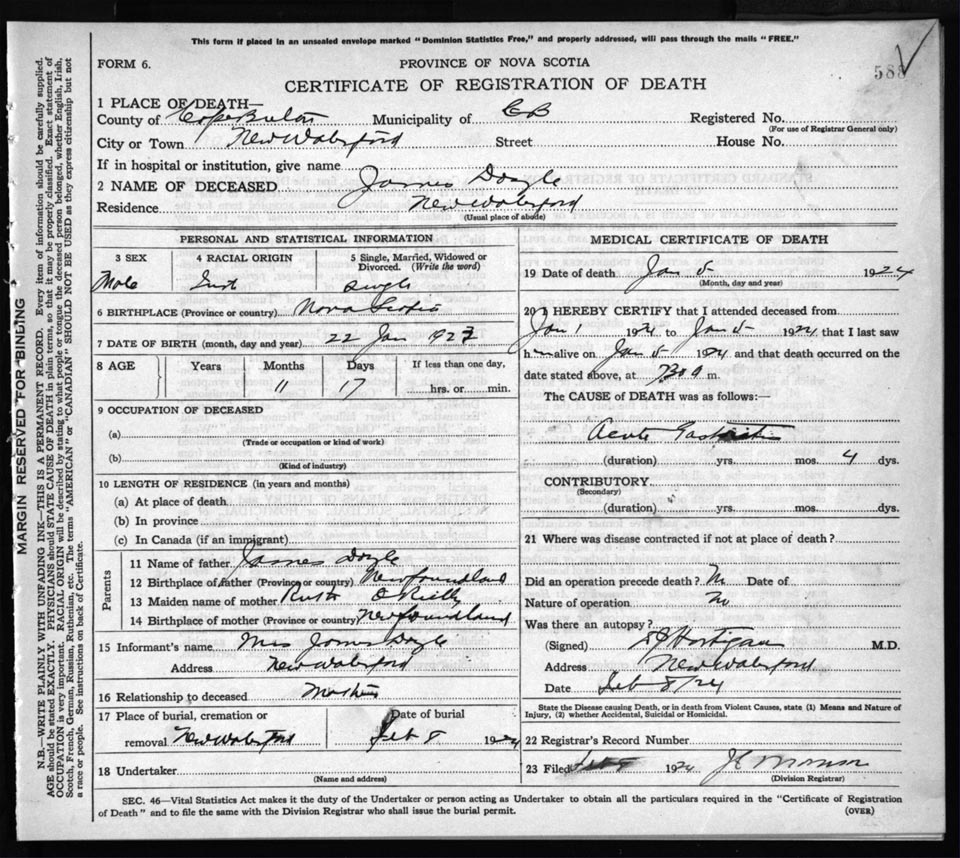 This form if placed in an unsealed envelope marked "Dominion Statistics Free," and properly addressed, will pass through the mails "FREE."
FORM 6.
PROVINCE OF NOVA SCOTIA
588
CERTIFICATE OF REGISTRATION OF DEATH
1 PLACE OF DEATH—
County of Cape Breton Municipality of CB Registered No.
(For use of Registrar General only)
City or Town New Waterford Street House No.
If in hospital or institution, give name
2 NAME OF DECEASED James Doyle
Residence New Waterford
(Usual place of abode)
PERSONAL AND STATISTICAL INFORMATION
3 SEX 4 RACIAL ORIGIN 5 Single, Married, Widowed or Divorced. (Write the word)
Male single
6 BIRTHPLACE (Province or country) Nova Scotia
7 DATE OF BIRTH (month, day and year) 22 Jan 1923
8 AGE Years Months Days If less than one day,
11 17 hrs. or min.
9 OCCUPATION OF DECEASED
(a)
(Trade or occupation or kind of work)
(b)
(Kind of industry)
10 LENGTH OF RESIDENCE (in years and months)
(a) At place of death
(b) In province
(c) In Canada (if an immigrant)
Parents
11 Name of father James Doyle
12 Birthplace of father (Province or country) Newfoundland
13 Maiden name of mother Ruth O Reilly
14 Birthplace of mother (Province or country) Newfoundland
15 Informant's name Mrs James Doyle
Address New Waterford
16 Relationship to deceased Mother
17 Place of burial, cremation or Date of burial
removal New Waterford Feb 8 1924
18 Undertaker
(Name and address)
MEDICAL CERTIFICATE OF DEATH
19 Date of death Jan 5 1924
(Month, day and year)
20 I HEREBY CERTIFY that I attended deceased from
Jan 1 1924 to Jan 5 1924 that I last saw
him alive on Jan 5 1924 and that death occurred on the
date stated above, at 730 a m.
The CAUSE of DEATH was as follows:—
Acute Gastritis
(duration) yrs. mos. 4 dys.
CONTRIBUTORY
(Secondary)
(duration) yrs. mos. dys.
21 Where was disease contracted if not at place of death?
Did an operation precede death? No Date of
Nature of operation no
Was there an autopsy?
(Signed) Hartigan M.D.
Address New Waterford
Date Feb 8/24
State the Disease causing Death, or in death from Violent Causes, state (1) Means and Nature of
Injury, (2) whether Accidental, Suicidal or Homicidal.
22 Registrar's Record Number
23 Filed Feb 1924
(Division Registrar)
SEC. 46—Vital Statistics Act makes it the duty of the Undertaker or person acting as Undertaker to obtain all the particulars required in the "Certificate of Registration
of Death" and to file the same with the Division Registrar who shall issue the burial permit.
(OVER)
MARGIN RESERVED FOR BINDING
N.B.—WRITE PLAINLY WITH UNFADING INK—THIS IS A PERMANENT RECORD. Every item of information should be carefully supplied.
AGE should be stated EXACTLY. PHYSICIANS should STATE CAUSE OF DEATH in plain terms, so that it may be properly classified. Exact statement of
OCCUPATION is very important. RACIAL ORIGIN will be described by stating to what people or tongue the deceased person belonged, whether English, Irish,
Scotch, French, German, Russian, Ruthenian, etc. The terms "AMERICAN" or "CANADIAN" SHOULD NOT BE USED as they express citizenship but not
a race or people. See instructions on back of Certificate.